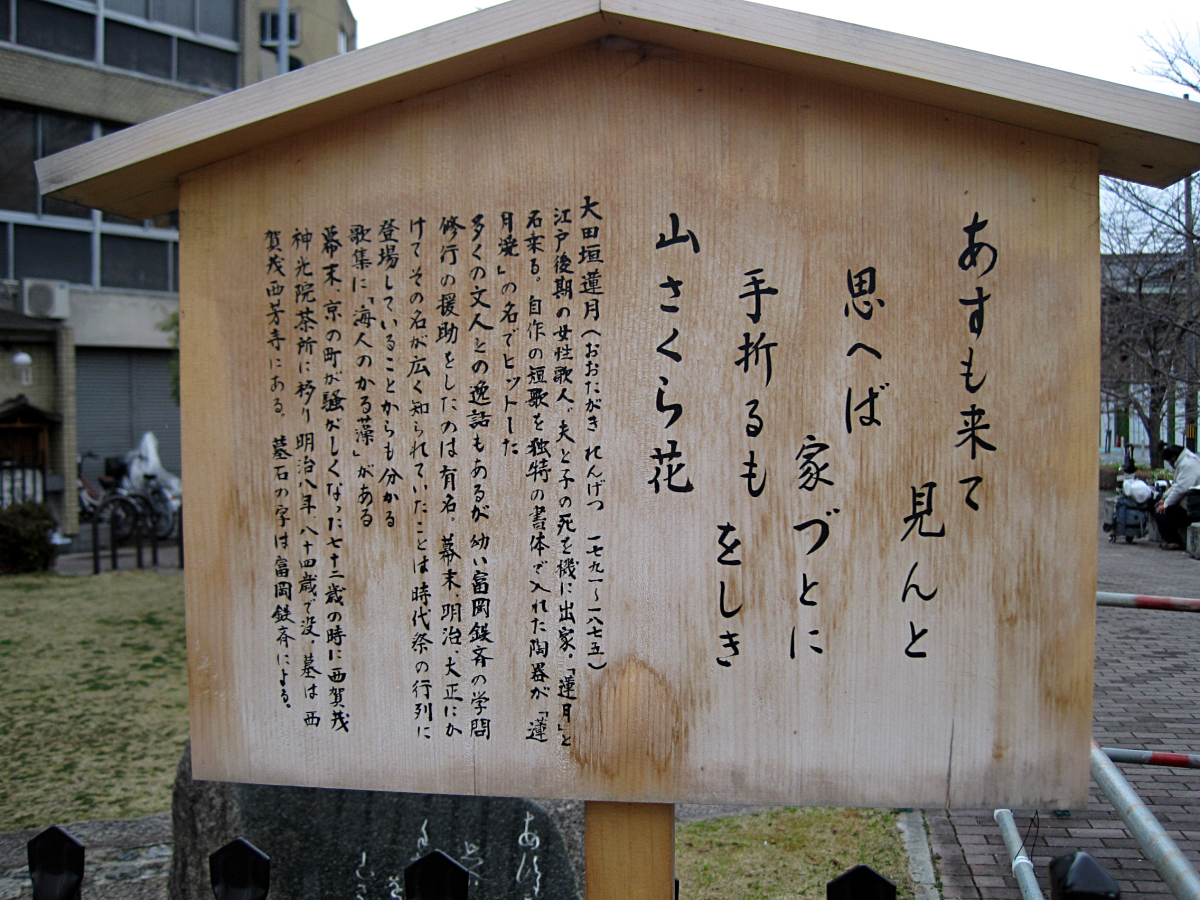 あすも来て
見んと
思へば
家づとに
手折るも
をしき
山さくら花
大田垣蓮月（おおたがき れんげつ 一七九一～一八七五）
江戸後期の女性歌人。夫と子の死を機に出家。「蓮月」と
名乗る。自作の短歌を独特の書体で入れた陶器が「蓮
月焼」の名でヒットした
多くの文人との逸話もあるが幼い富岡鉄斉の学問
修行の援助をしたのは有名。幕末、明治、大正にか
けてその名が広く知られていたことは時代祭の行列に
登場していることからも分かる
歌集に「海人のかる藻」がある
幕末、京の町が騒がしくなった七十三歳の時に西賀茂
神光院茶所に移り明治八年八十四歳で没。墓は西
賀茂西芳寺にある。墓石の字は富岡鉄斉による。